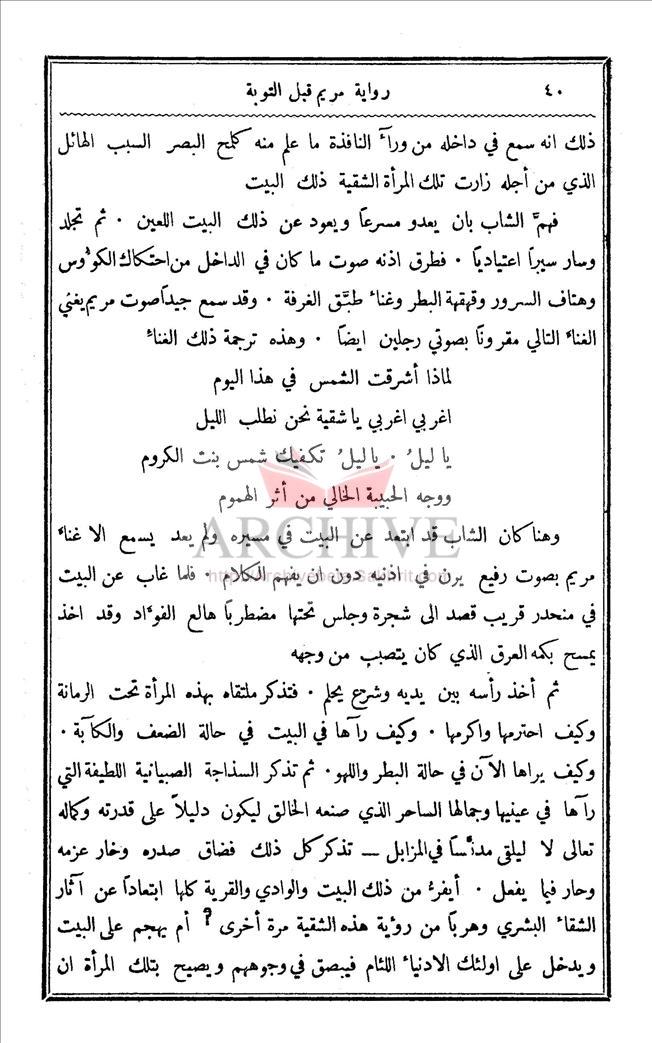 ٤٠ رواية مريم قبل التوبة
ذلك انه سمع في داخله من ورآء النافذة ما علم منه كلمح البصر السبب الهائل
الذي من أجله زارت تلك المرأة الشقية ذلك البيت
فهمَّ الشاب بان يعدو مسرعاً ويعود عن ذلك البيت اللعين ٠ ثم تجلد
وسار سيراً اعتيادياً ٠ فطرق اذنه صوت ما كان في الداخل من احتكاك الكوءوس
وهتاف السرور وقهقهة البطر وغناء طبَّق الغرفة ٠ وقد سمع جيداً صوت مريم يغني
الغناء التالي مقروناً بصوتي رجلين ايضاً ٠ وهذه ترجمة ذلك الغناء
لماذا أشرقت الشمس في هذا اليوم
اغربي اغربي يا شقية نحن نطلب الليل
يا ليلُ ٠ يا ليلُ تكفيك شمس بنت الكروم
ووجه الحبيبة الخالي من أثر الهموم
ARCHIVE
وهنا كان الشاب قد ابتعد عن البيت في مسيره ولم يعد يسمع الا غناء
مريم بصوت رفيع يرن في اذنيه دون ان يفهم الكلام ٠ فلما غاب عن البيت
في منحدر قريب قصد الى شجرة وجلس تحتها مضطرباً هالع الفوءاد وقد اخذ
يمسح بكمه العرق الذي كان يتصبب من وجهه
ثم أخذ رأسه بين يديه وشرع يحلم ٠ فتذكر ملتقاه بهذه المرأة تحت الرمانة
وكيف احترمها واكرمها ٠ وكيف رآها في البيت في حالة الضعف والكآبة ٠
وكيف يراها الآن في حالة البطر واللهو ٠ ثم تذكر السذاجة الصبيانية اللطيفة التي
رآها في عينيها وجمالها الساحر الذي صنعه الخالق ليكون دليلاً على قدرته وكماله
تعالى لا ليلقى مدنَّساً في المزابل — تذكر كل ذلك فضاق صدره وخار عزمه
وحار فيما يفعل ٠ أيفرُّ من ذلك البيت والوادي والقرية كلها ابتعاداً عن آثار
الشقاء البشري وهرباً من رؤية هذه الشقية مرة أخرى ؟ أم يهجم على البيت
ويدخل على اولئك الادنياء اللئام فيبصق في وجوههم ويصيح بتلك المرأة ان